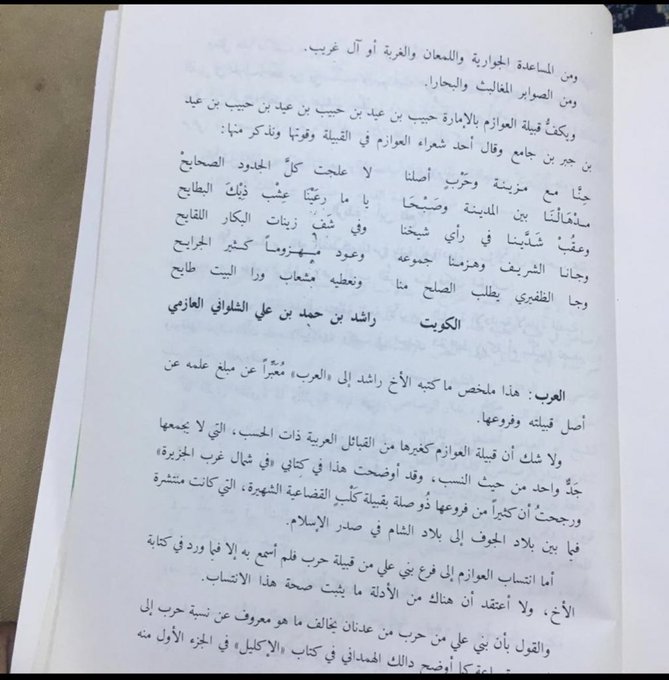 ومن المساعدة الجوارية واللمعان والغربة أو آل غريب.
ومن الصوابر المغالبث والبحارا.
ويكفُّ قبيلة العوازم بالإمارة حبيب بن عيد بن حبيب بن عيد بن حبيب بن عيد
بن جبر بن جامع وقال أحد شعراء العوازم في القبيلة وقوتها ونذكر منها:
حِنَّا مع مزينة وحَرْبٍ أصلنا لا علجت كلَّ الجدود الصحايحْ
مدْهَالْنَا بين المدينة وصَبْحَا يا ما رَعَيْنَا عِشْب ذِيْكَ البطايح
وعقُبْ شَدَّينا في رأي شيخنا وفي شَفِّ زينات البكار اللقايح
وجانا الشريف وهزمنا جموعه وعود مهزوماً كثير الجرايح
وجا الظفيري يطلب الصلح منا ونعطيه مْشعاب ورا البيت طايح
الكويت راشد بن حمد بن علي الشلواني العازمي
العرب: هذا ملخص ما كتبه الأخ راشد إلى «العرب» مُعَبِّراً عن مبلغ علمه عن
أصل قبيلته وفروعها.
ولا شك أن قبيلة العوازم كغيرها من القبائل العربية ذات الحسب، التي لا يجمعها
جَدٌّ واحد من حيث النسب، وقد أوضحت هذا في كتابي «في شمال غرب الجزيرة»
ورجحتُ أن كثيراً من فروعها ذُو صلة بقبيلة كَلْبٍ القضاعية الشهيرة، التي كانت منتشرة
فيما بين بلاد الجوف إلى بلاد الشام في صدر الإسلام.
أما انتساب العوازم إلى فرع بني علي من قبيلة حرب فلم أسمع به إلا فيما ورد في كتابة
الأخ، ولا أعتقد أن هناك من الأدلة ما يثبت صحة هذا الانتساب.
والقول بأن بني علي من حرب من عدنان يخالف ما هو معروف عن نسبة حرب إلى
كما أوضح دالك الهمداني في كتاب «الإكليل» في الجزء الأول منه